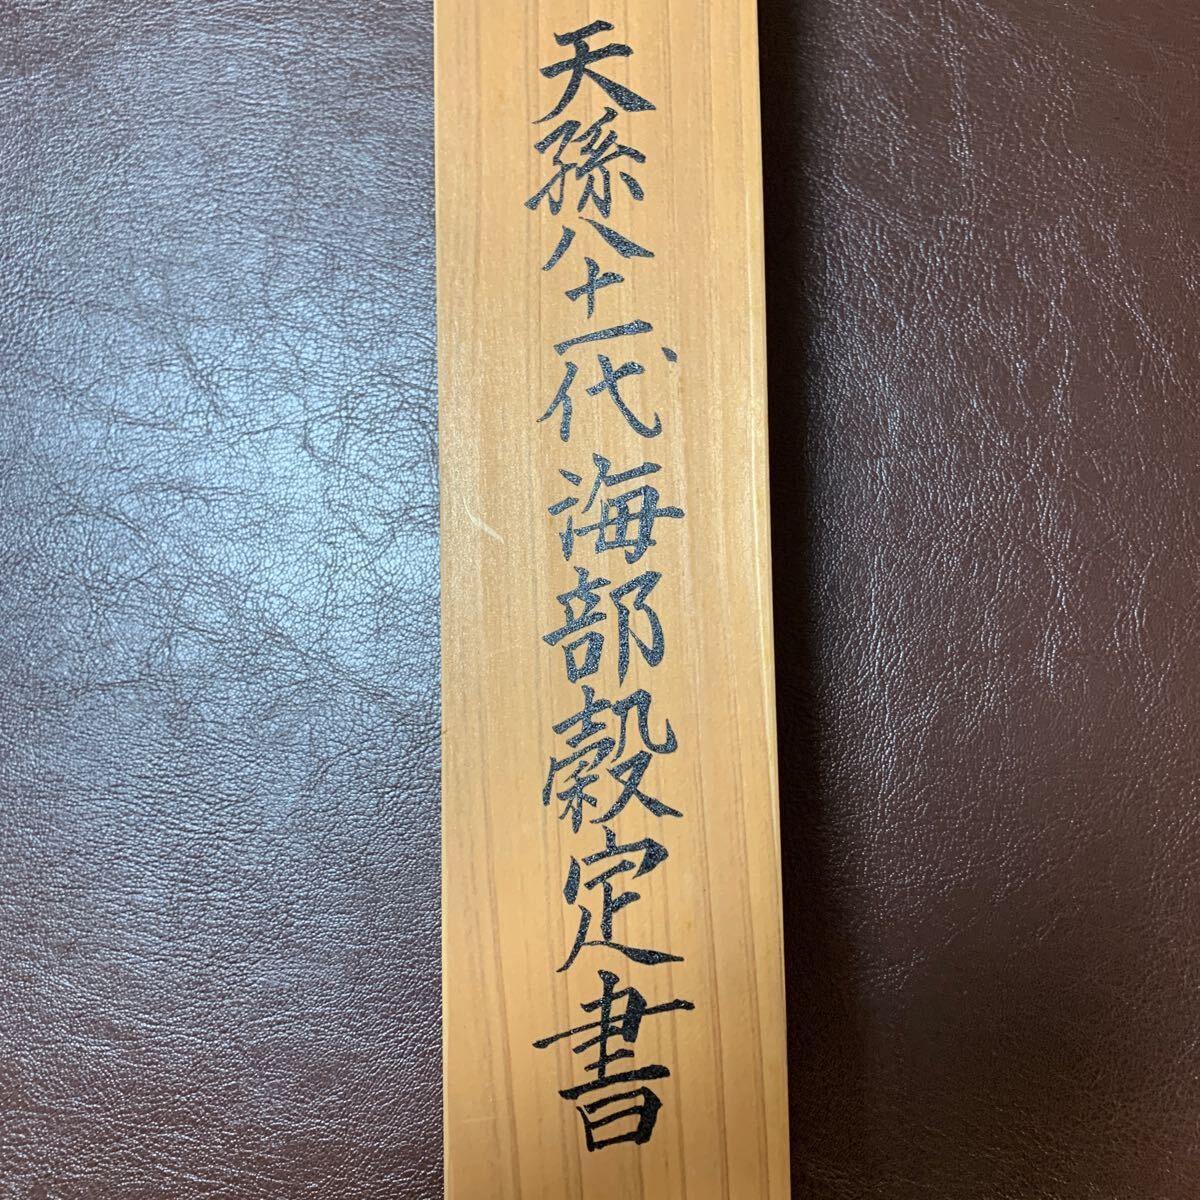 天孫八十一代海部穀定書